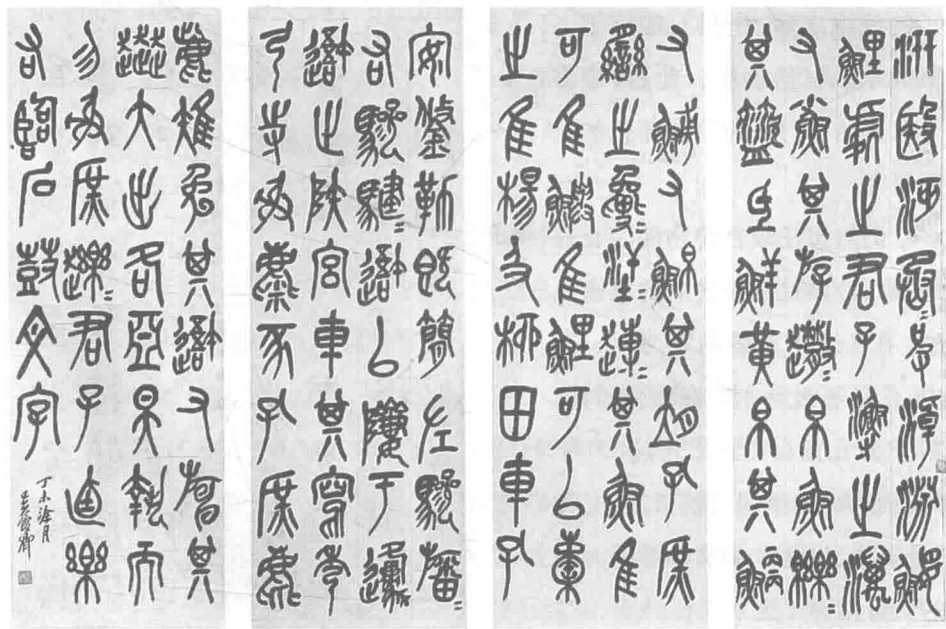 汧殹沔丞皮淖淵鰋
鯉處之君子漁之澫
又小魚其斿趣帛魚皪
其盜氐鮮黃帛其鯾
又䲕又鮊其孔庶
臠之㲋汗趍其魚隹
可隹鱮隹鯉可以橐
之隹楊及柳田車孔
安鋚勒既簡左驂旛
右驂騝䢒以隮于邍
䢒止陝宮車其寫秀
弓寺射麋豕孔庶麀
鹿雉兔其䢒又其
大出各亞昊執而
勿射庶趮君子逌樂
右臨石鼓文字
丁未涂月
吳俊卿